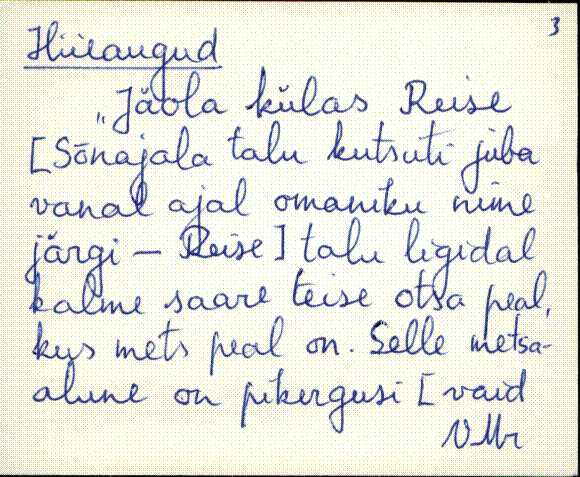 3
Hiieaugud
„Jäola külas Reise
[Sõnajala talu kutsuti juba
vanal ajal omaniku nime
järgi – Reise] talu ligidal
kalme saare teise otsa peal,
kus mets peal on. Selle metsa-
alune on pikergusi [vaid
VMr